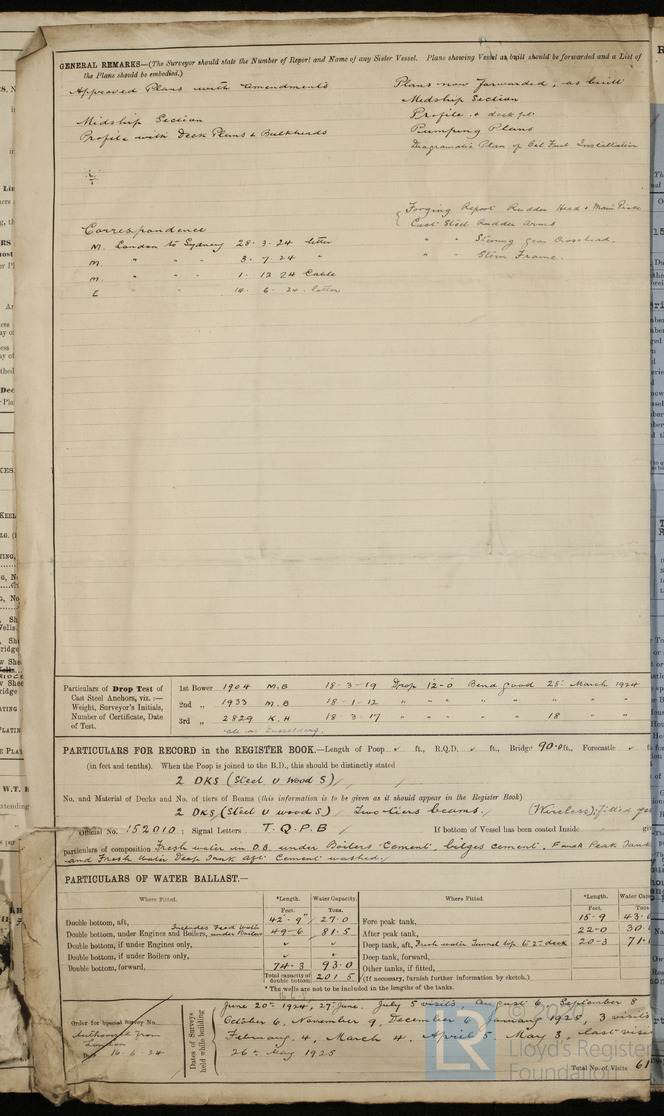 GENERAL REMARKS—(The Surveyor should state the Number of Report and Name of any Sister Vessel. Plans showing Vessel as built should be forwarded and a List of
the Plans should be embodied.)
Approved Plans with Amendments
Midship Section
Profile with Deck Plans & Bulkheads
Plans now forwarded, as built
Midship Section
Profile & deck pl
Pumping Plans
Diagramatic Plan of Oil Fuel Installation
Forging Report Rudder Head & Main Piece
Cast Steel Rudder Arms
" " Steering gear Crosshead.
" " Stern Frame.
Correspondence
M. London to Sydney 28. 3. 24 letter
M. " " " 3. 7. 24 "
M. " " " 1. 12 24 Cable
E " " " 14. 6. 24. letter
Particulars of Drop Test of
Cast Steel Anchors, viz. :—
Weight, Surveyor's Initials,
Number of Certificate, Date
of Test.
1st Bower 1904 M.B 18-3-19 Drop 12-0 Bend good 25th March 1924
2nd „ 1933 M.B 18-1-12 " " " " " " "
3rd „ 2829 K.H 18-3-17 " " " " 18 " "
PARTICULARS FOR RECORD in the REGISTER BOOK.—Length of Poop ft., R.Q.D. ft., Bridge 90.0 ft., Forecastle
(in feet and tenths). When the Poop is joined to the B.D., this should be distinctly stated
2 DKS (Steel U Wood S)
No. and Material of Decks and No. of tiers of Beams (this information is to be given as it should appear in the Register Book)
2 DKS (Steel U wood S) Two tiers beams. (Wireless) fitted
Official No. 152010 ; Signal Letters T. Q. P. B If bottom of Vessel has been coated Inside
particulars of composition Fresh water in D.B. under Boilers Cement, bilges cement, F and A Peak Tank
and Fresh Water Deep Tank aft Cement washed.
PARTICULARS OF WATER BALLAST.—
Where Fitted. *Length. Water Capacity. Where Fitted. *Length.
Feet. Tons. Feet. Tons.
Double bottom, aft, 42-9" 27.0 Fore peak tank, 15-9
Includes Feed Water
Double bottom, under Engines and Boilers, under Boilers 49-6 81.5 After peak tank, 22-0
Double bottom, if under Engines only, " " Deep tank, aft, Fresh water Tunnel top to 2nd deck 20-3
Double bottom, if under Boilers only, " " Deep tank, forward,
Double bottom, forward, 74-3 93.0 Other tanks, if fitted,
Total capacity of double bottom 201.5 (If necessary, furnish further information by sketch.)
* The wells are not to be included in the lengths of the tanks.
Order for Special Survey No.
Authority from
London
Date 14.6.24
Dates of Surveys
held while building
June 20th 1924, 27th June. July 5 visits, August 6, September 8
October 6, November 9, December 6, January 1925, 3 visits
February. 4, March 4. April 5. May 3, Last visit
26th May 1925
Total No. of Visits 61
LR
Lloyd's Register
Foundation